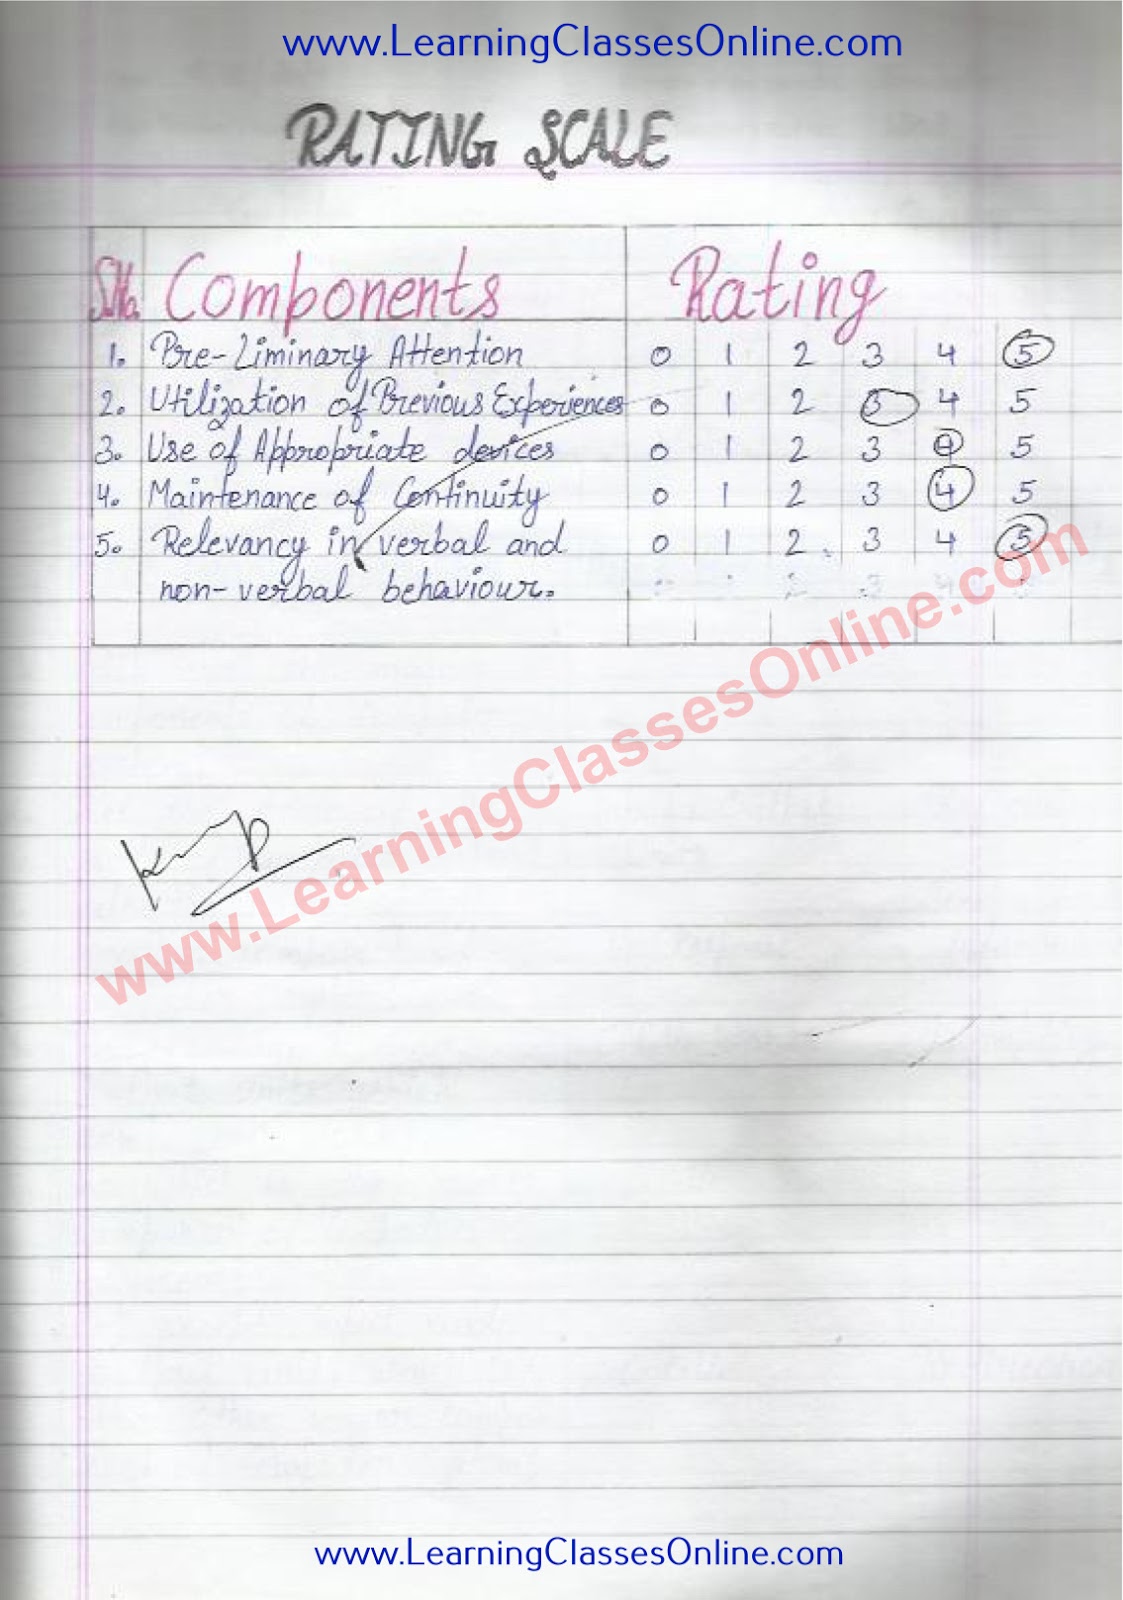 www.LearningClassesOnline.com
RATING SCALE
S.No. Components Rating
1. Pre-Liminary Attention 0 1 2 3 4 5
2. Utilization of Previous Experiences 0 1 2 3 4 5
3. Use of Appropriate devices 0 1 2 3 4 5
4. Maintenance of Continuity 0 1 2 3 4 5
5. Relevancy in verbal and 0 1 2 3 4 5
non-verbal behaviour. 2 3 4
www.LearningClassesOnline.com
www.LearningClassesOnline.com